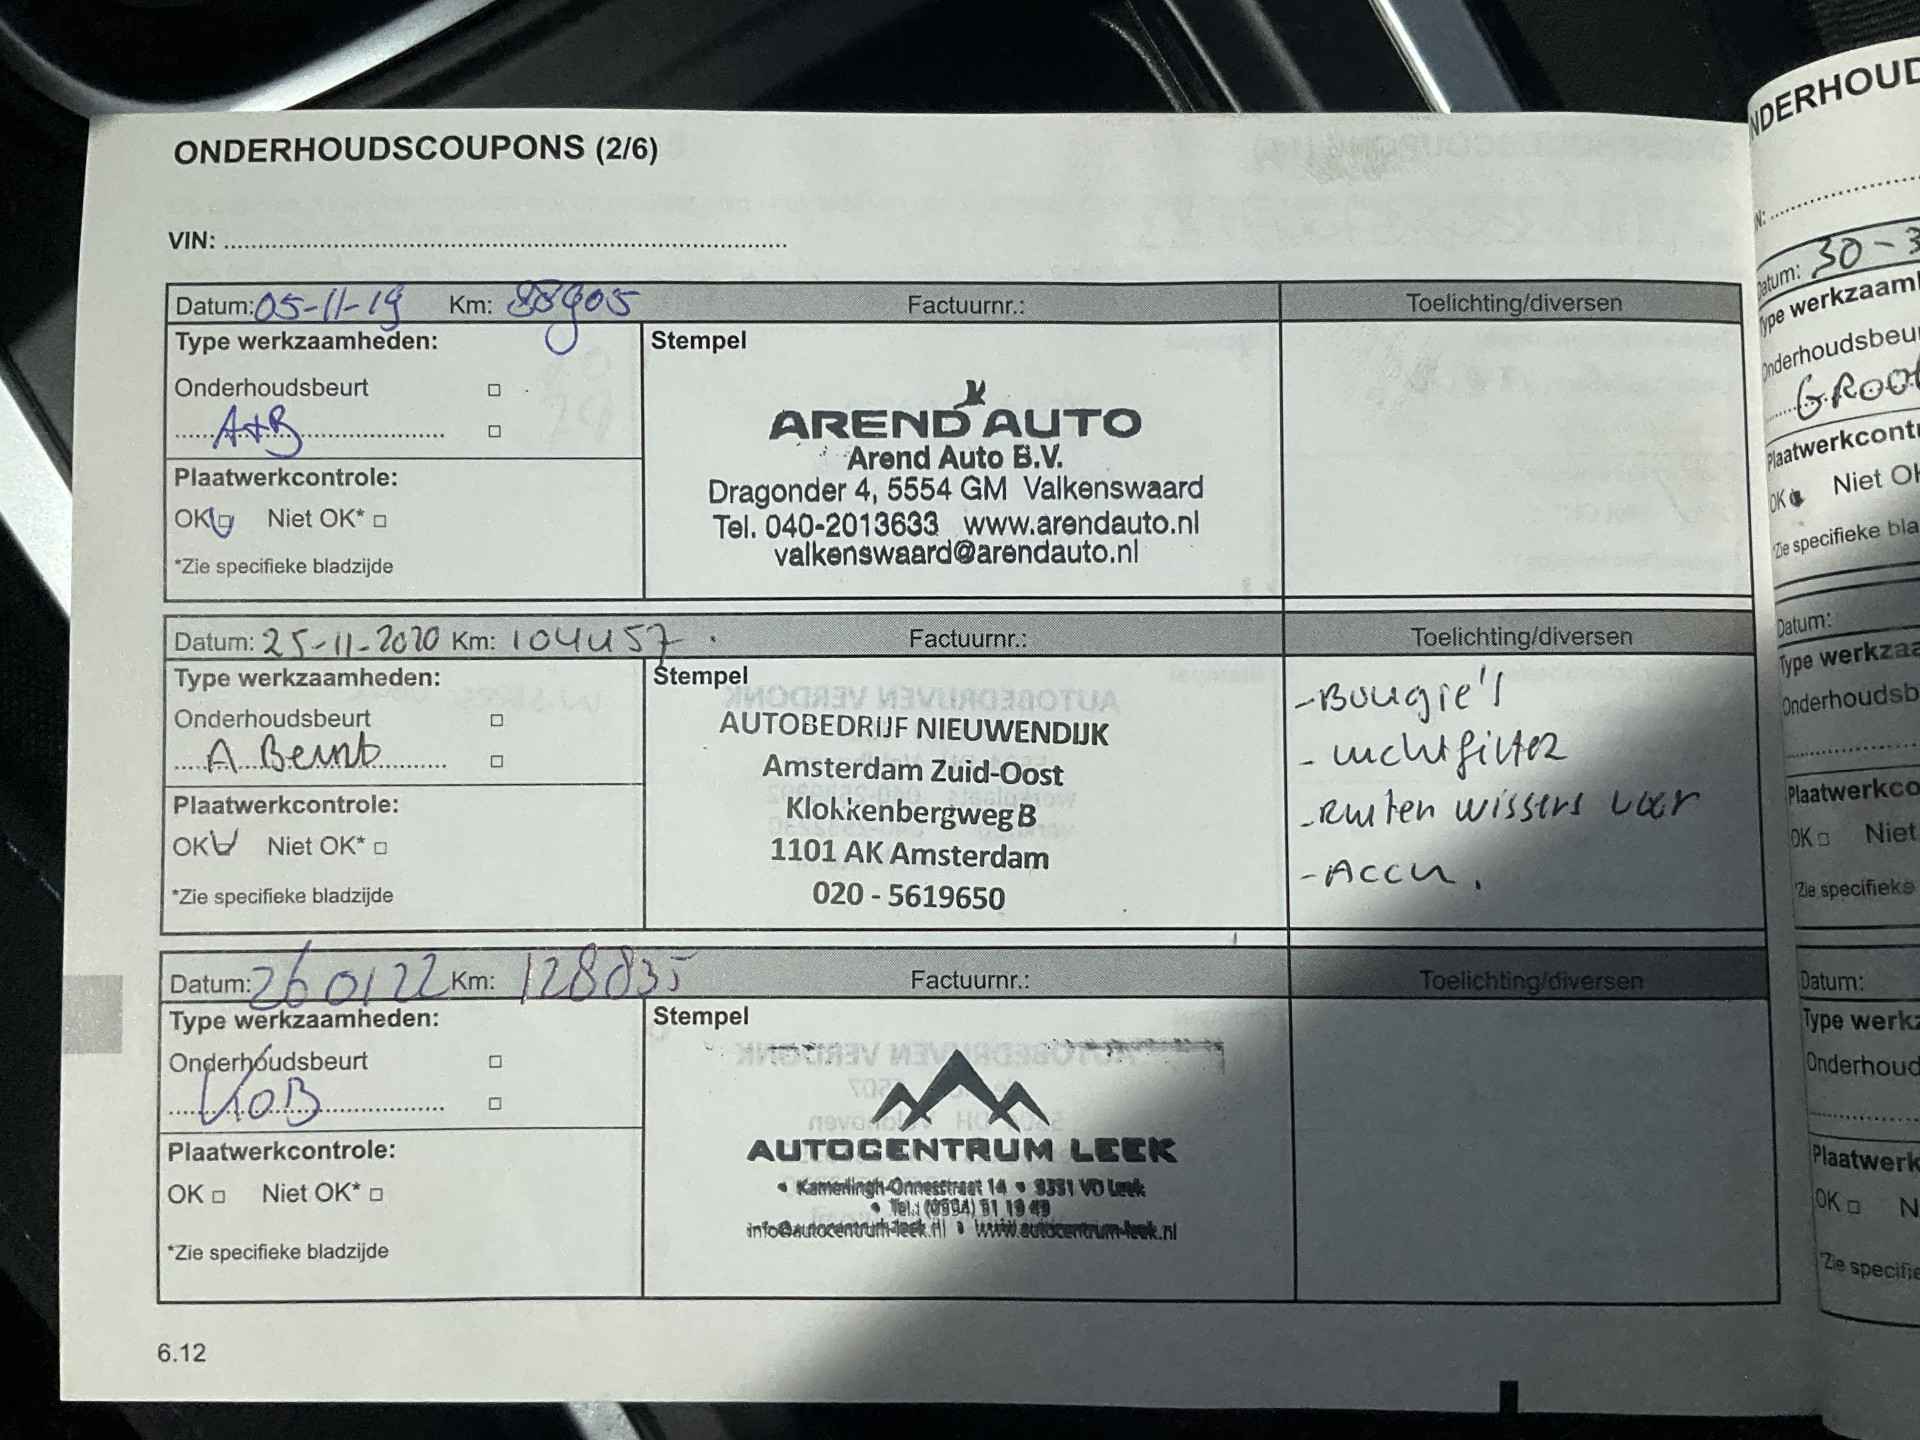 ONDERHOUDSCOUPONS (2/6)
VIN:
Datum: 05-11-19 Km: 88905 Factuurnr.: Toelichting/diversen
Type werkzaamheden:
Stempel
Onderhoudsbeurt
A+B
Plaatwerkcontrole:
OK Niet OK*
*Zie specifieke bladzijde
AREND AUTO
Arend Auto B.V.
Dragonder 4, 5554 GM Valkenswaard
Tel. 040-2013633 www.arendauto.nl
valkenswaard@arendauto.nl
Datum: 25-11-2020 Km: 104457 Factuurnr.: Toelichting/diversen
Type werkzaamheden:
Stempel
Onderhoudsbeurt
A Beurt
Plaatwerkcontrole:
OK Niet OK*
*Zie specifieke bladzijde
AUTOBEDRIJF NIEUWENDIJK
Amsterdam Zuid-Oost
Klokkenbergweg B
1101 AK Amsterdam
020 - 5619650
- Bougie's
- Luchtfilter
- Ruiten wissers voor
- Accu.
Datum: 260122 Km: 128835 Factuurnr.: Toelichting/diversen
Type werkzaamheden:
Stempel
Onderhoudsbeurt
Plaatwerkcontrole:
OK Niet OK*
*Zie specifieke bladzijde
AUTOCENTRUM LEEK
• Kamerlingh-Onnesstraat 14 • 9351 VD Leek
• Tel.: (0594) 51 19 49
info@autocentrum-leek.nl • www.autocentrum-leek.nl
6.12
Datum: 30-3
Plaatwerkcontr
OK Niet
Datum:
Datum: